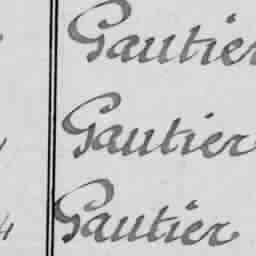 Gautier
Gautier
4 Gautier